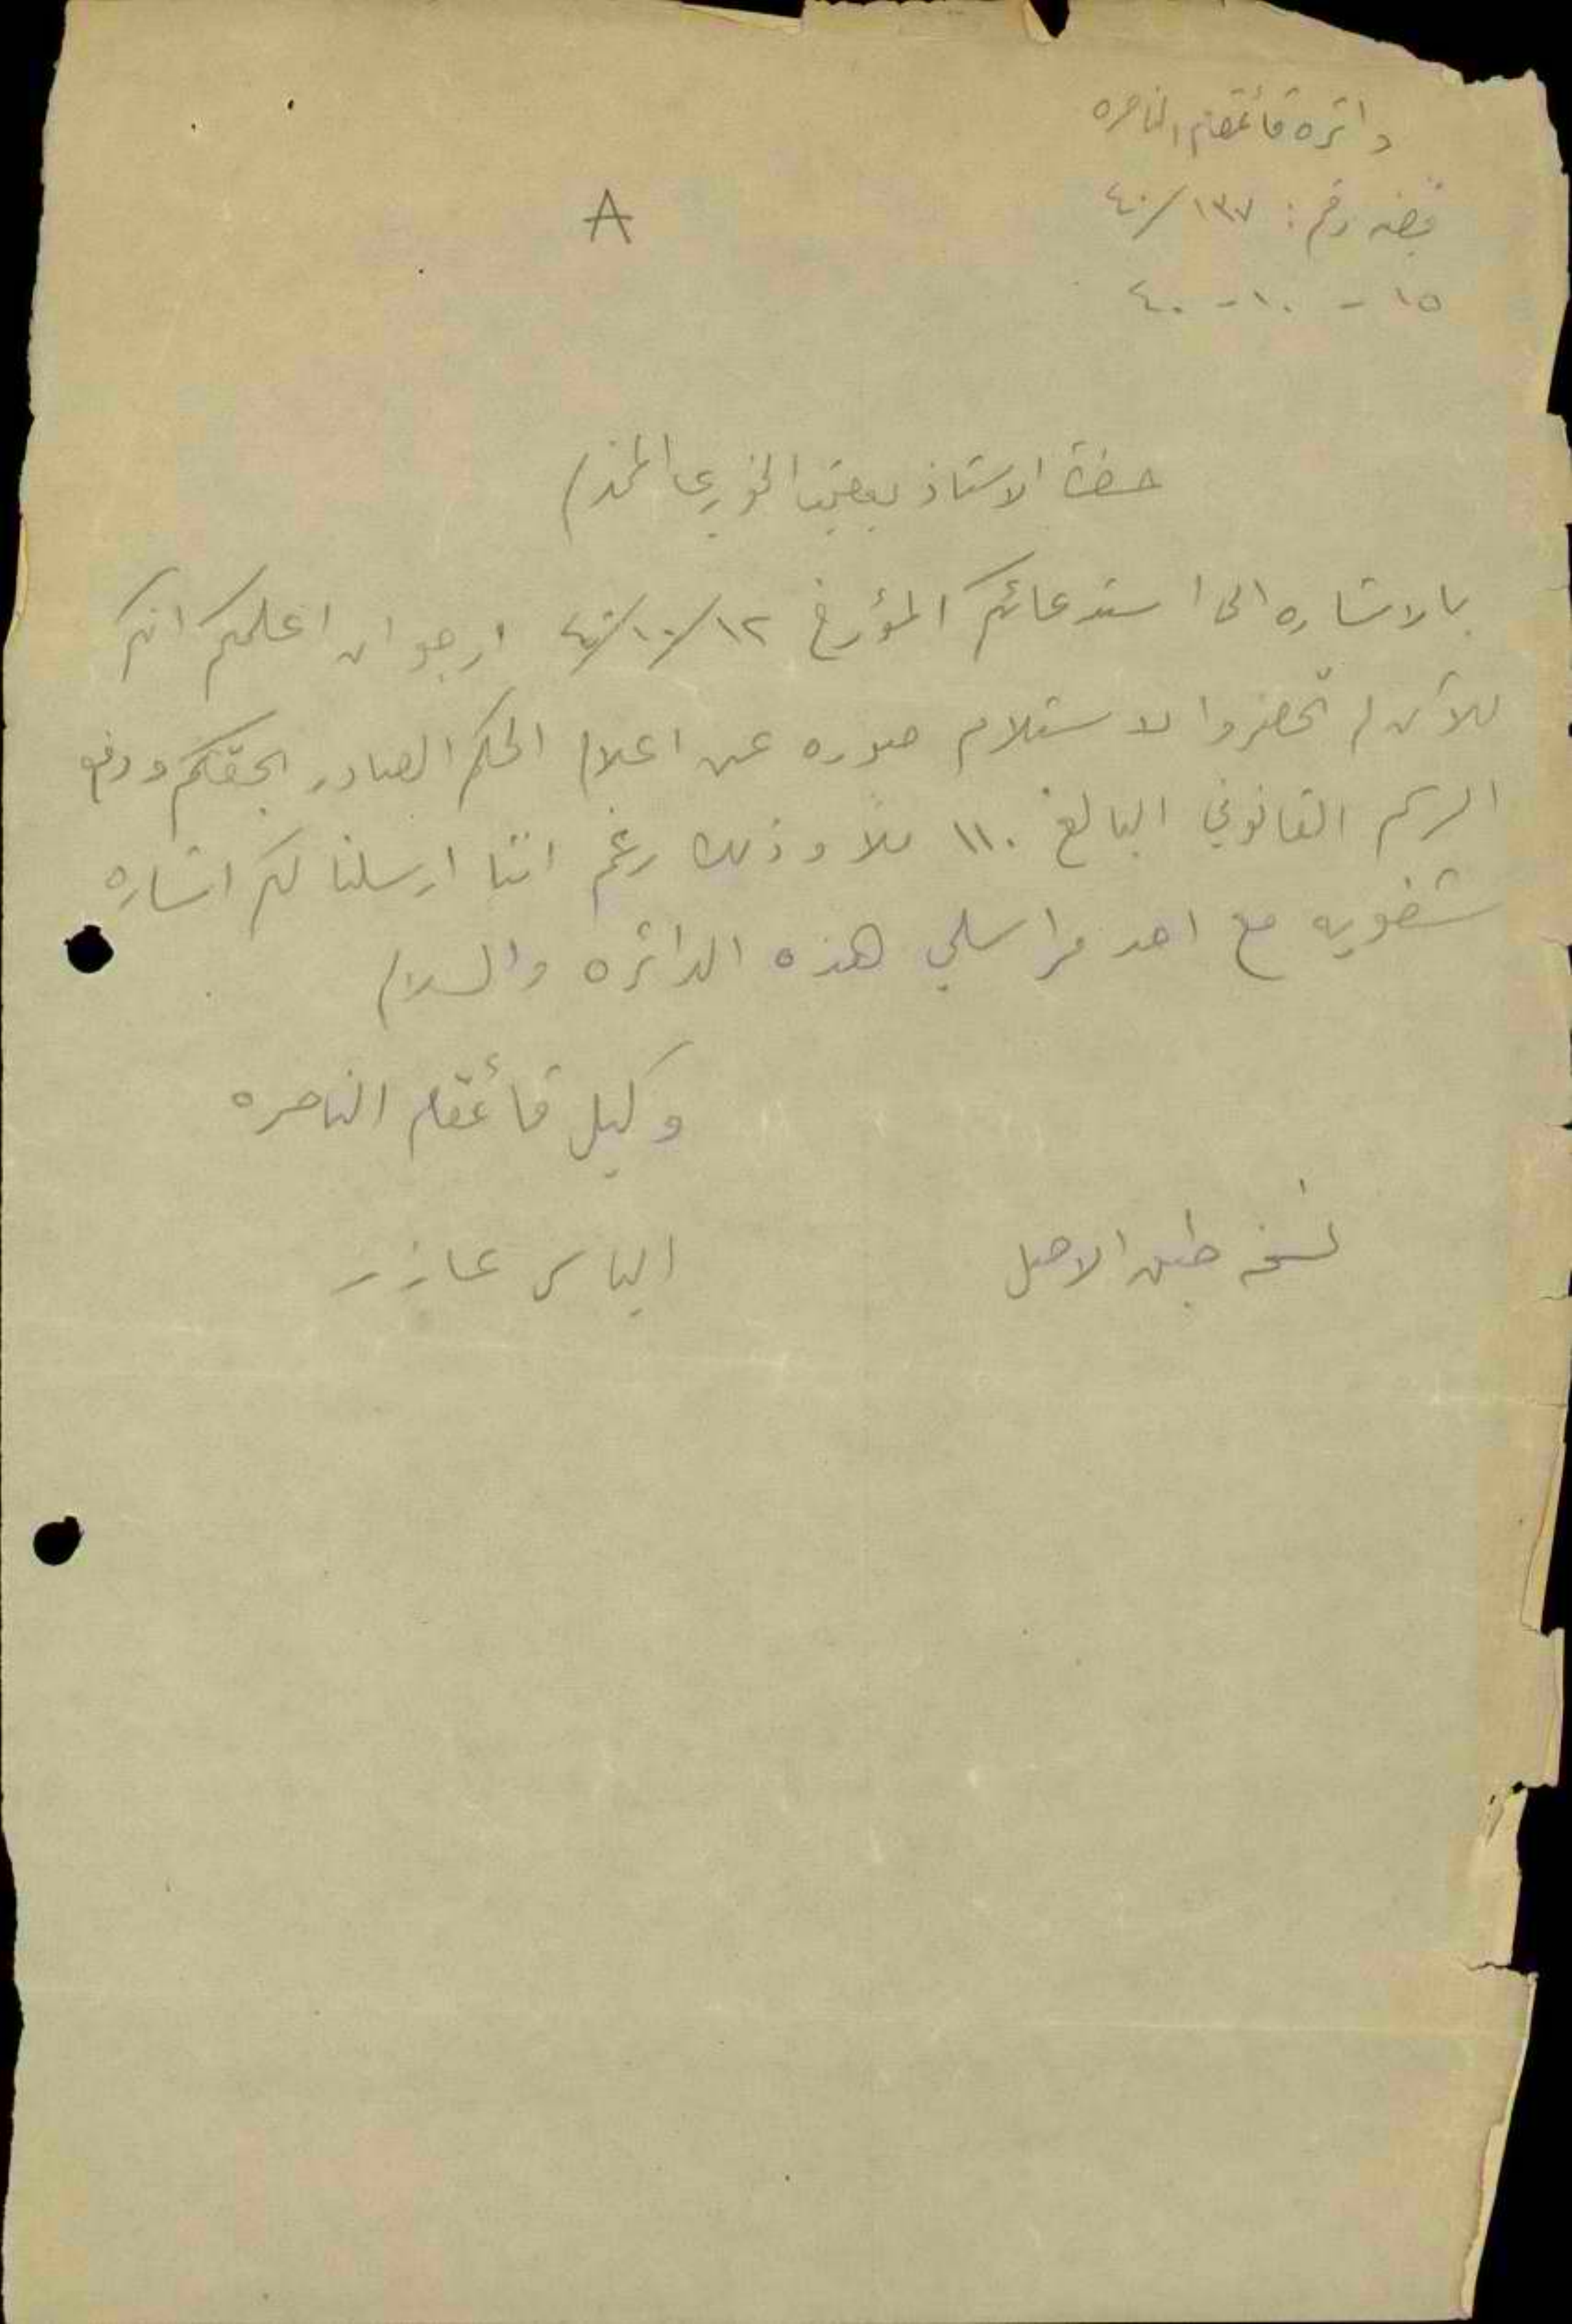 دائرة قائمقام الناصره
A
قضيه رقم: ١٣٧/٤٠
١٥ - ١٠ - ٤٠
حضرة الاستاذ يعقوب الخوري المحترم
بالاشاره الى استدعائكم المؤرخ ١٢/١٠/٤٠ ارجو ان اعلمكم انكم
للآن لم تحضروا لاستلام صوره عن اعلام الحكم الصادر بحقكم ودفع
الرسم القانوني البالغ ١١٠ ملاً وذلك رغم اننا ارسلنا لكم اشاره
شفويه مع احد مراسلي هذه الدائره والسلام
وكيل قائمقام الناصره
نسخه طبق الاصل
الياس عازر